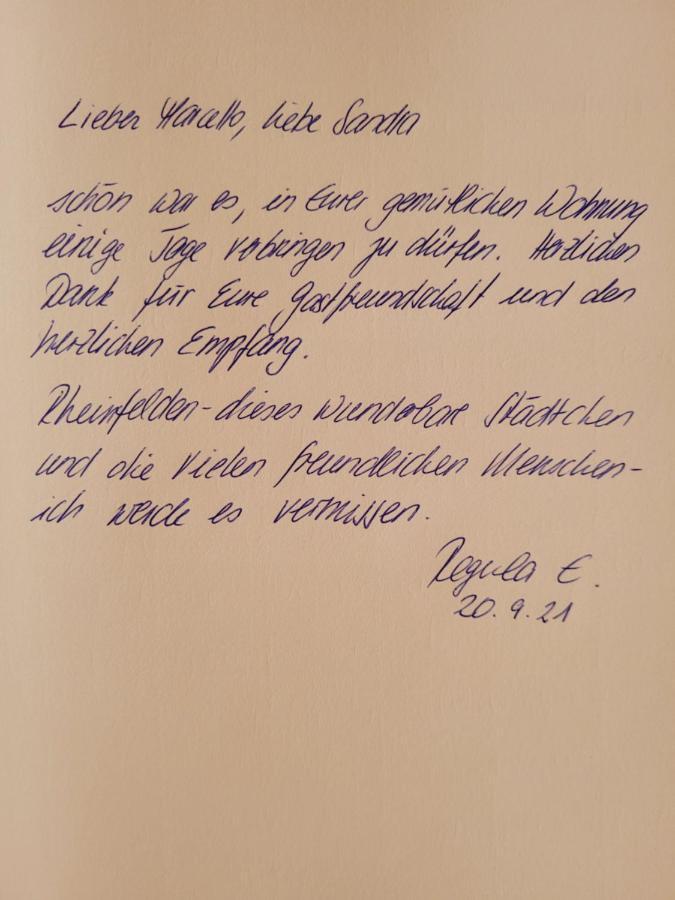 Lieber Marcello, liebe Sandra
schön war es, in Eurer gemütlichen Wohnung
einige Tage verbringen zu dürfen. Herzlichen
Dank für Eure Gastfreundschaft und den
herzlichen Empfang.
Rheinfelden - dieses wunderbare Städtchen
und die vielen freundlichen Menschen -
ich werde es vermissen.
Regula E.
20.9.21